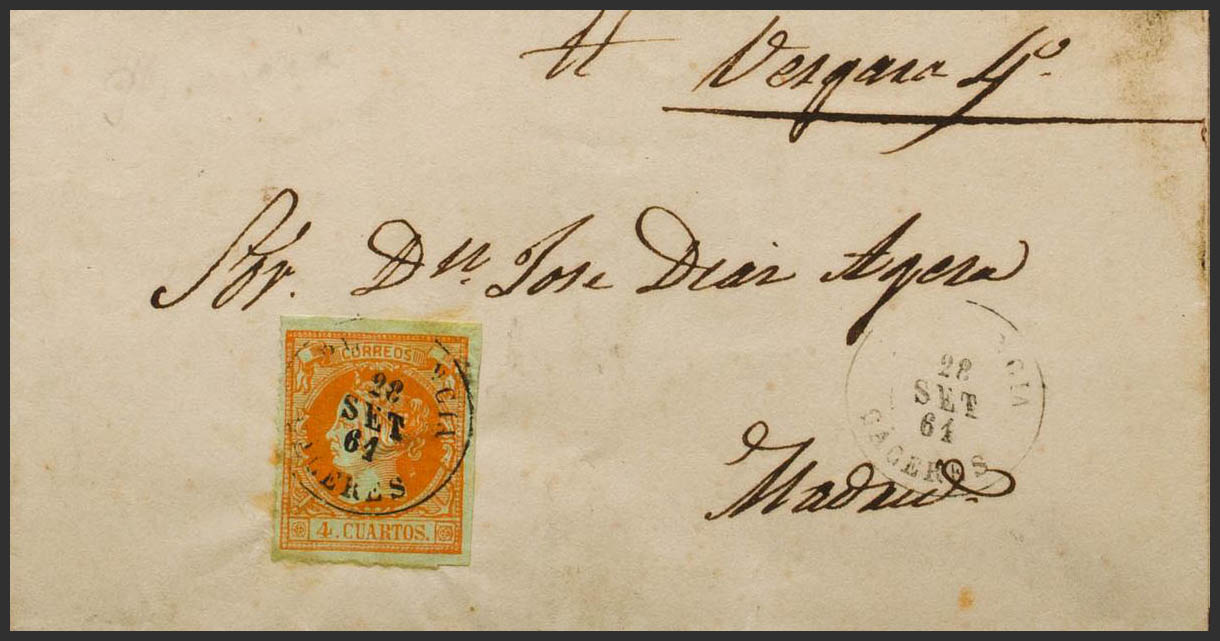 Vergara 4º.
Sór. Dn. Jose Diaz Agero
CORREOS
28
SET
61
CACERES
4. CUARTOS.
28
SET
61
CACERES
Madrid